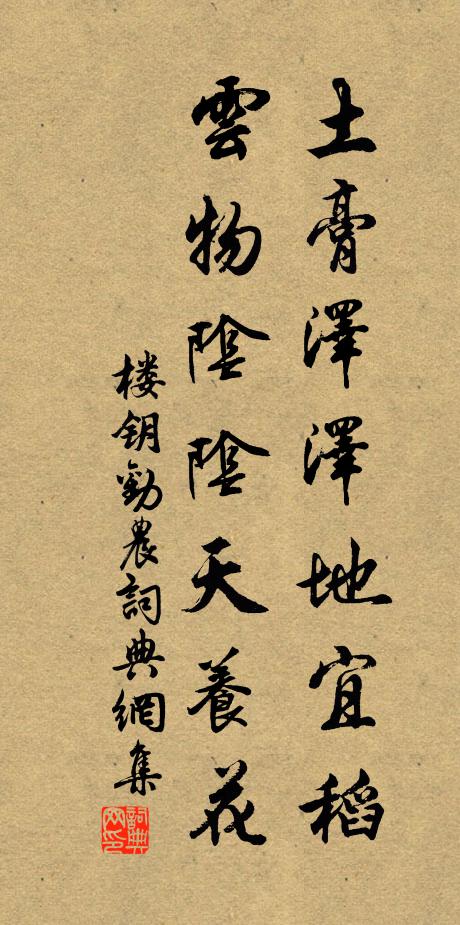 土膏澤澤地宜稻
雲物陰陰天養花
楼钥勸農詞典網集